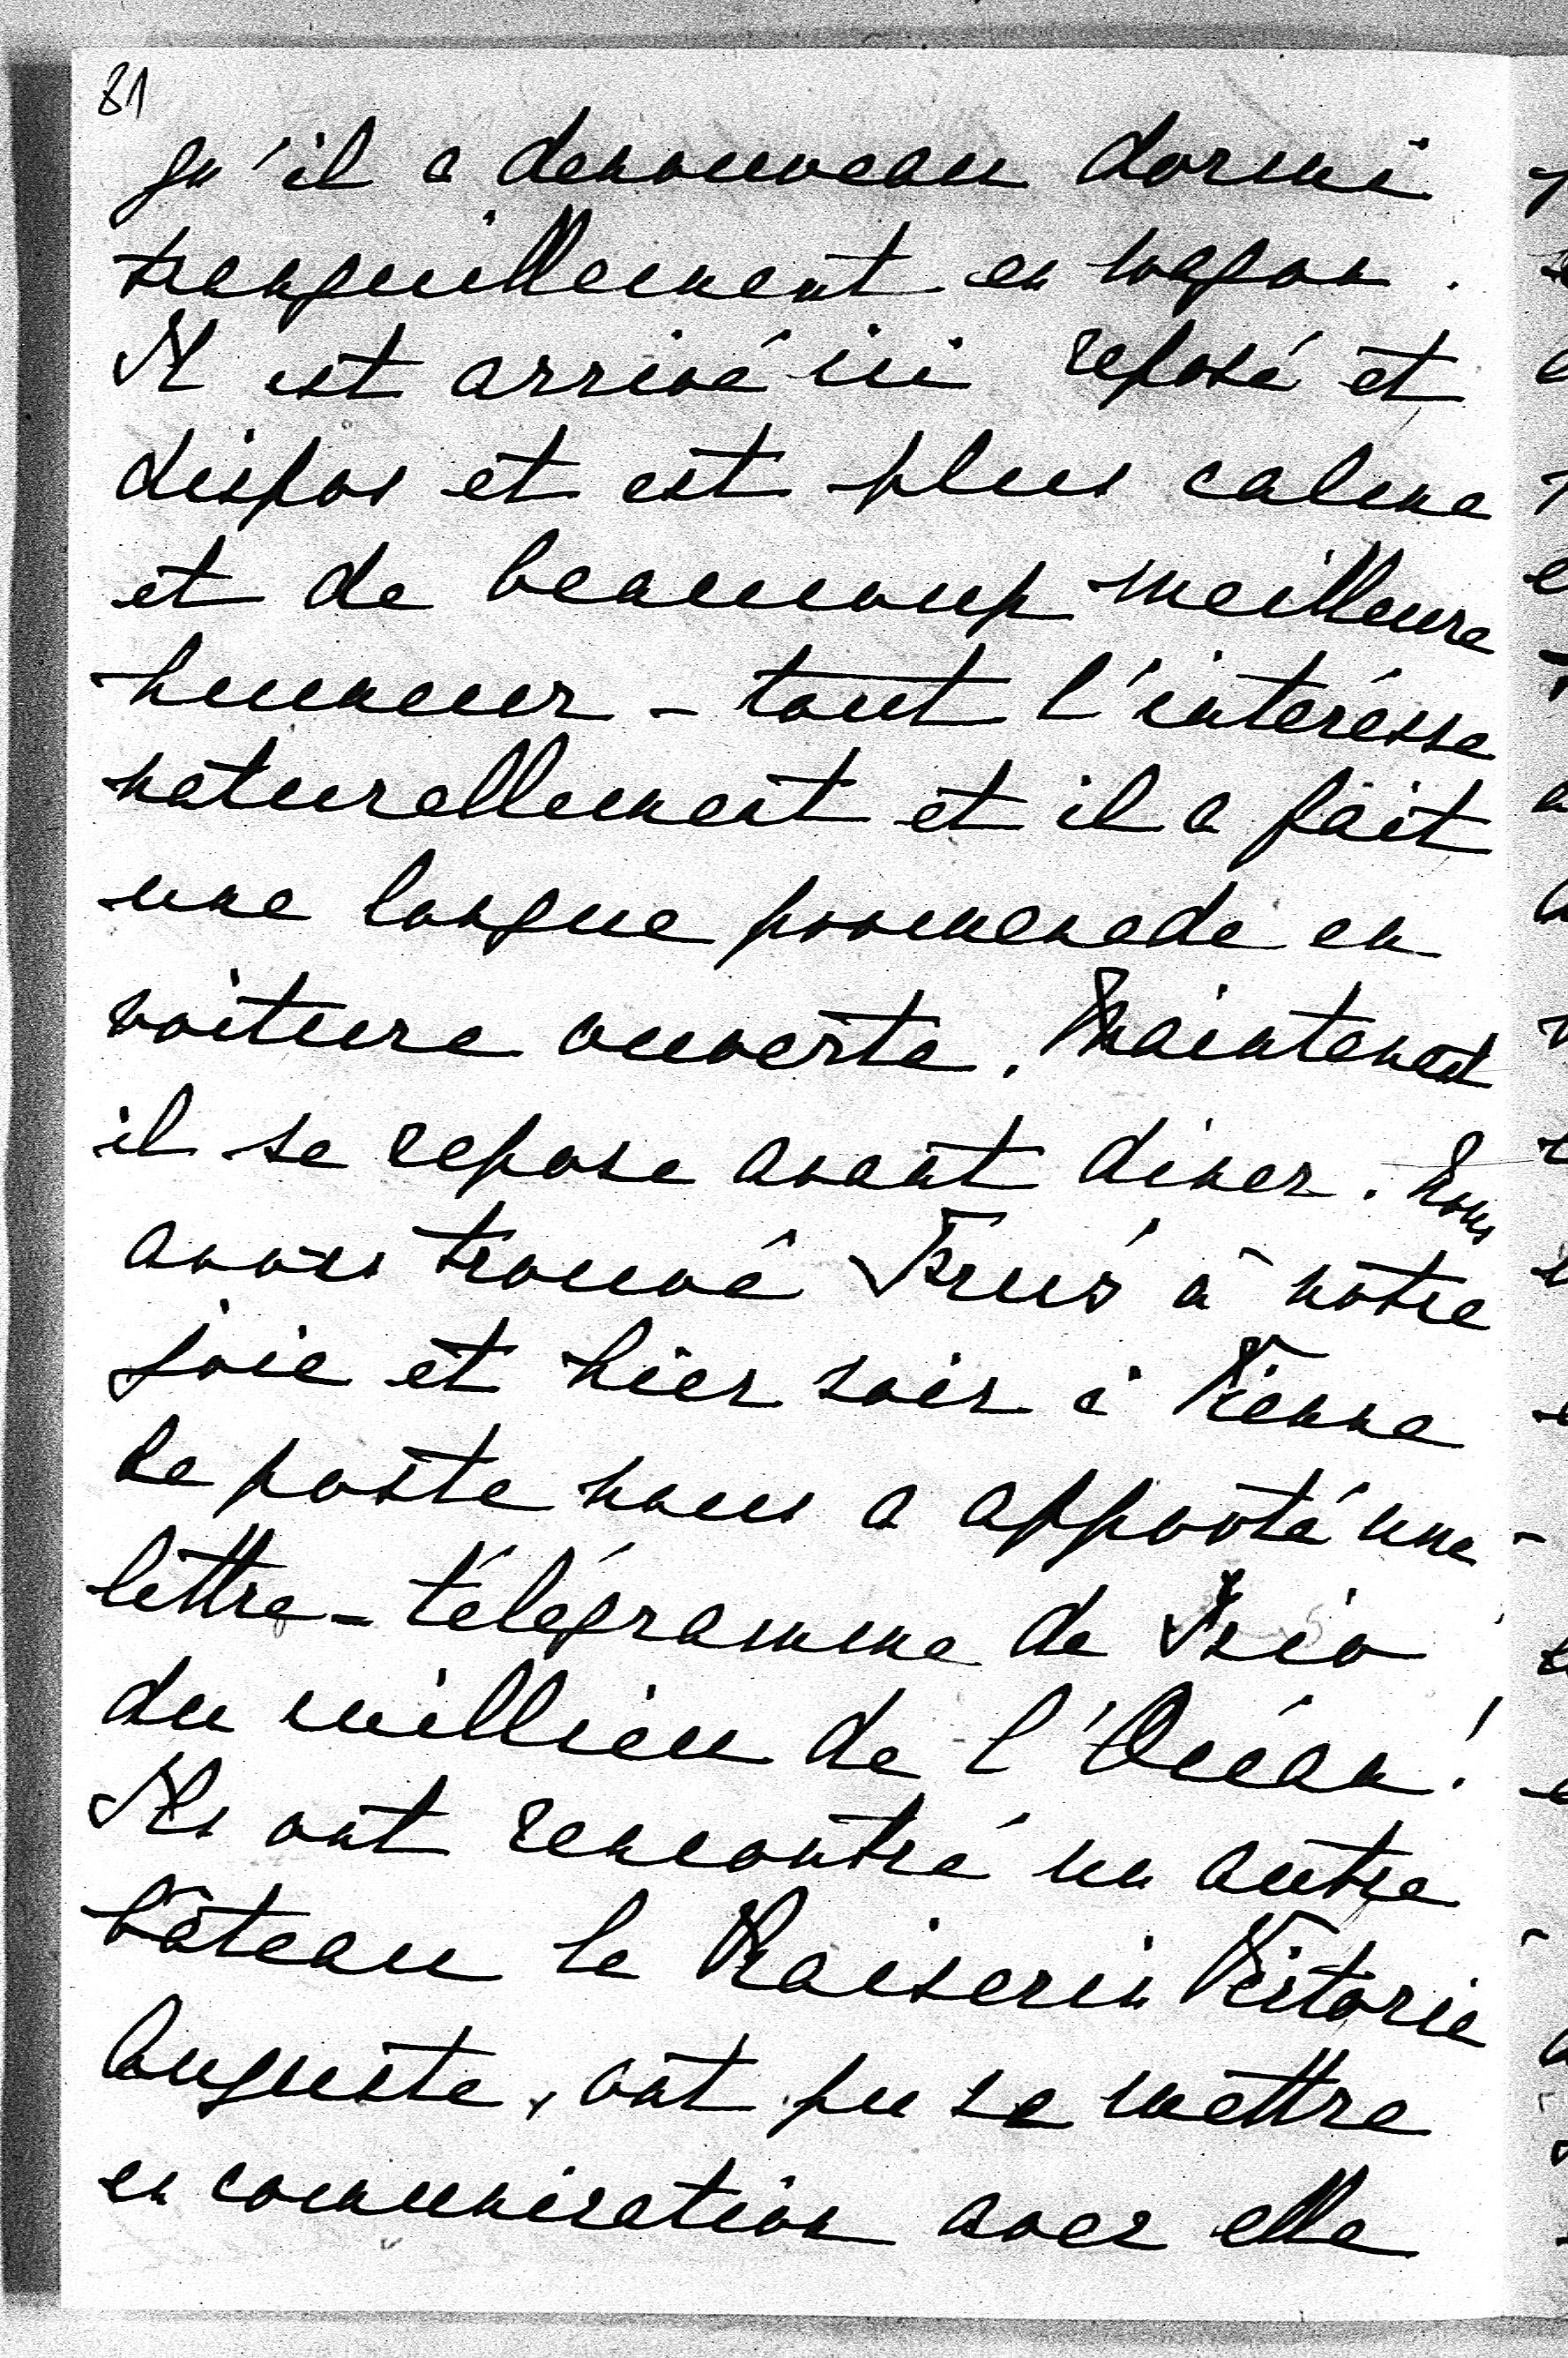 81
qu'il a denouveau dormi
tranquillement en wagon.
Il est arrivé ici reposé et
dispos et est plus calme
et de beaucoup meilleure
humeur - tout l'intéresse
naturellement et il a fait
une longue promenade en
voiture ouverte. Maintenant
il se repose avant diner. Nous
avons trouvé à notre
joie et hier soir à Vienne
la poste nous a apporté une
lettre - télégramme de
du millieu de l'Océan!
Ils ont rencontré un autre
bâteau le Kaiserin Victoria
Auguste, ont pu se mettre
en communication avec elle